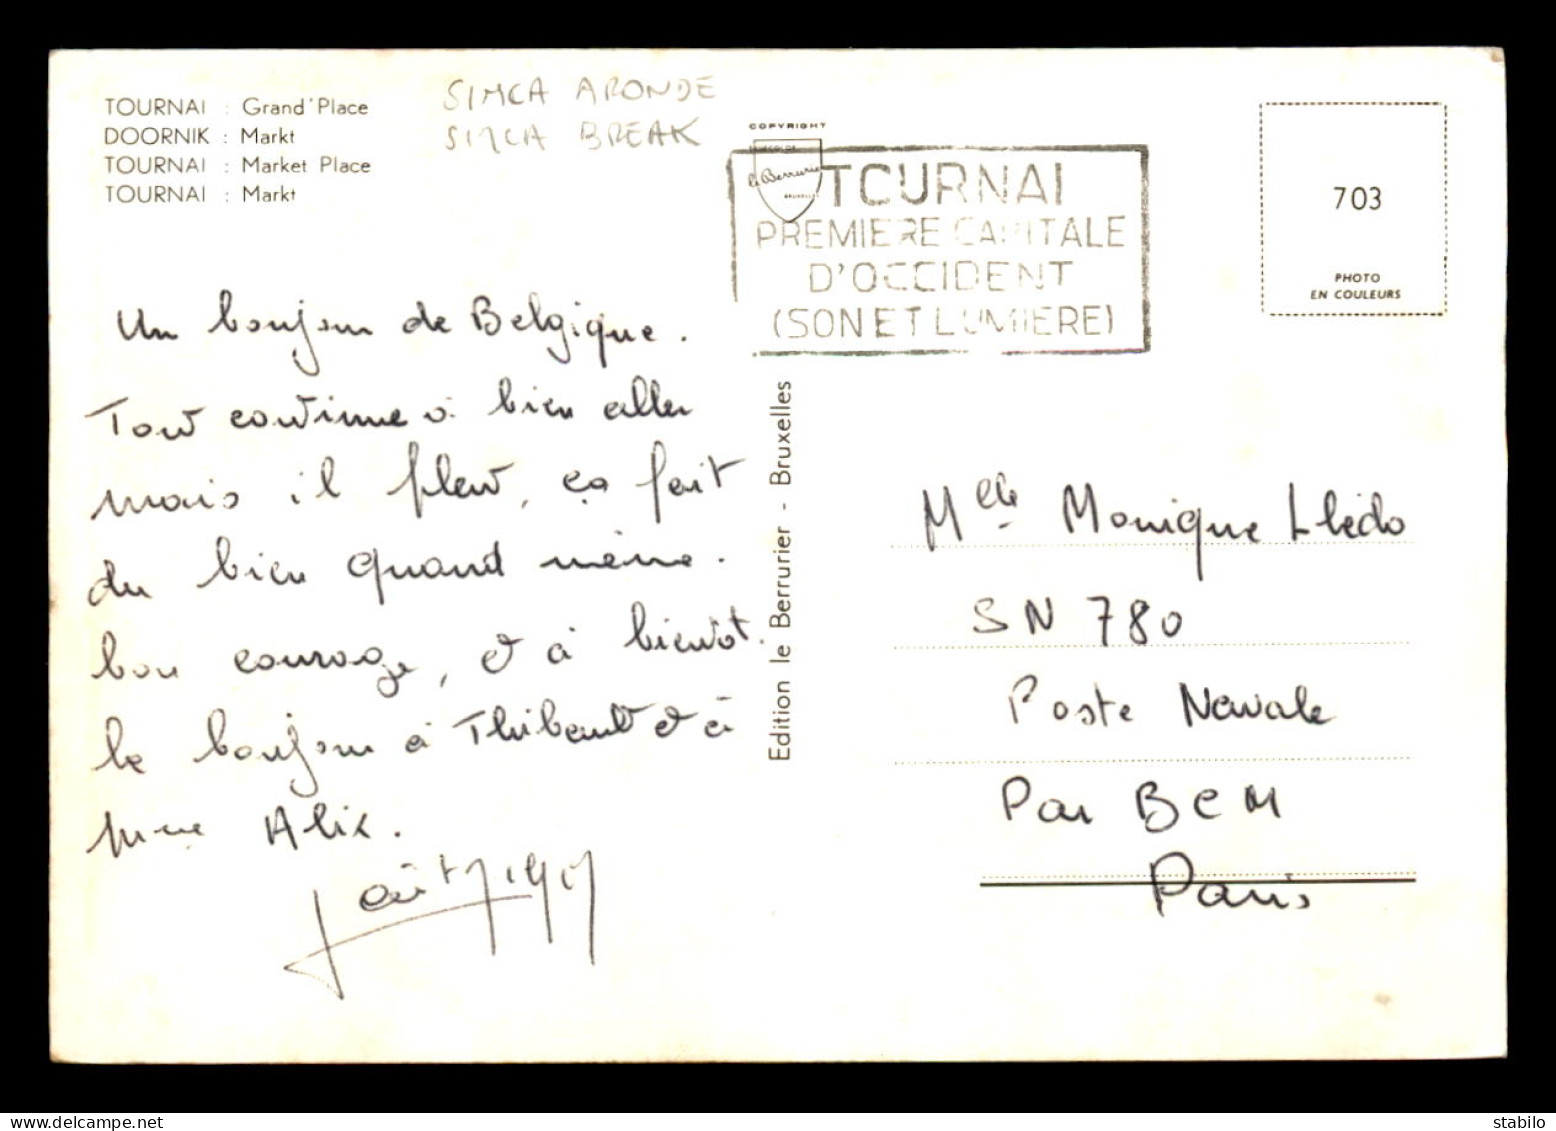 TOURNAI : Grand'Place
DOORNIK : Markt
TOURNAI : Market Place
TOURNAI : Markt
SIMCA ARONDE
SIMCA BREAK
COPYRIGHT
le Berrurier
BRUXELLES
TOURNAI
PREMIERE CAPITALE
D'OCCIDENT
(SON ET LUMIERE)
703
PHOTO
EN COULEURS
Un bonjour de Belgique.
Tout continue à bien aller
mais il pleut, ça fait
du bien quand même.
bon courage, et à bientôt.
le bonjour à Thibault et à
Mme Alix.
Edition le Berrurier - Bruxelles
Mlle Monique Llédo
SN 780
Poste Navale
Par BCM
Paris
delcampe.net
stabilo